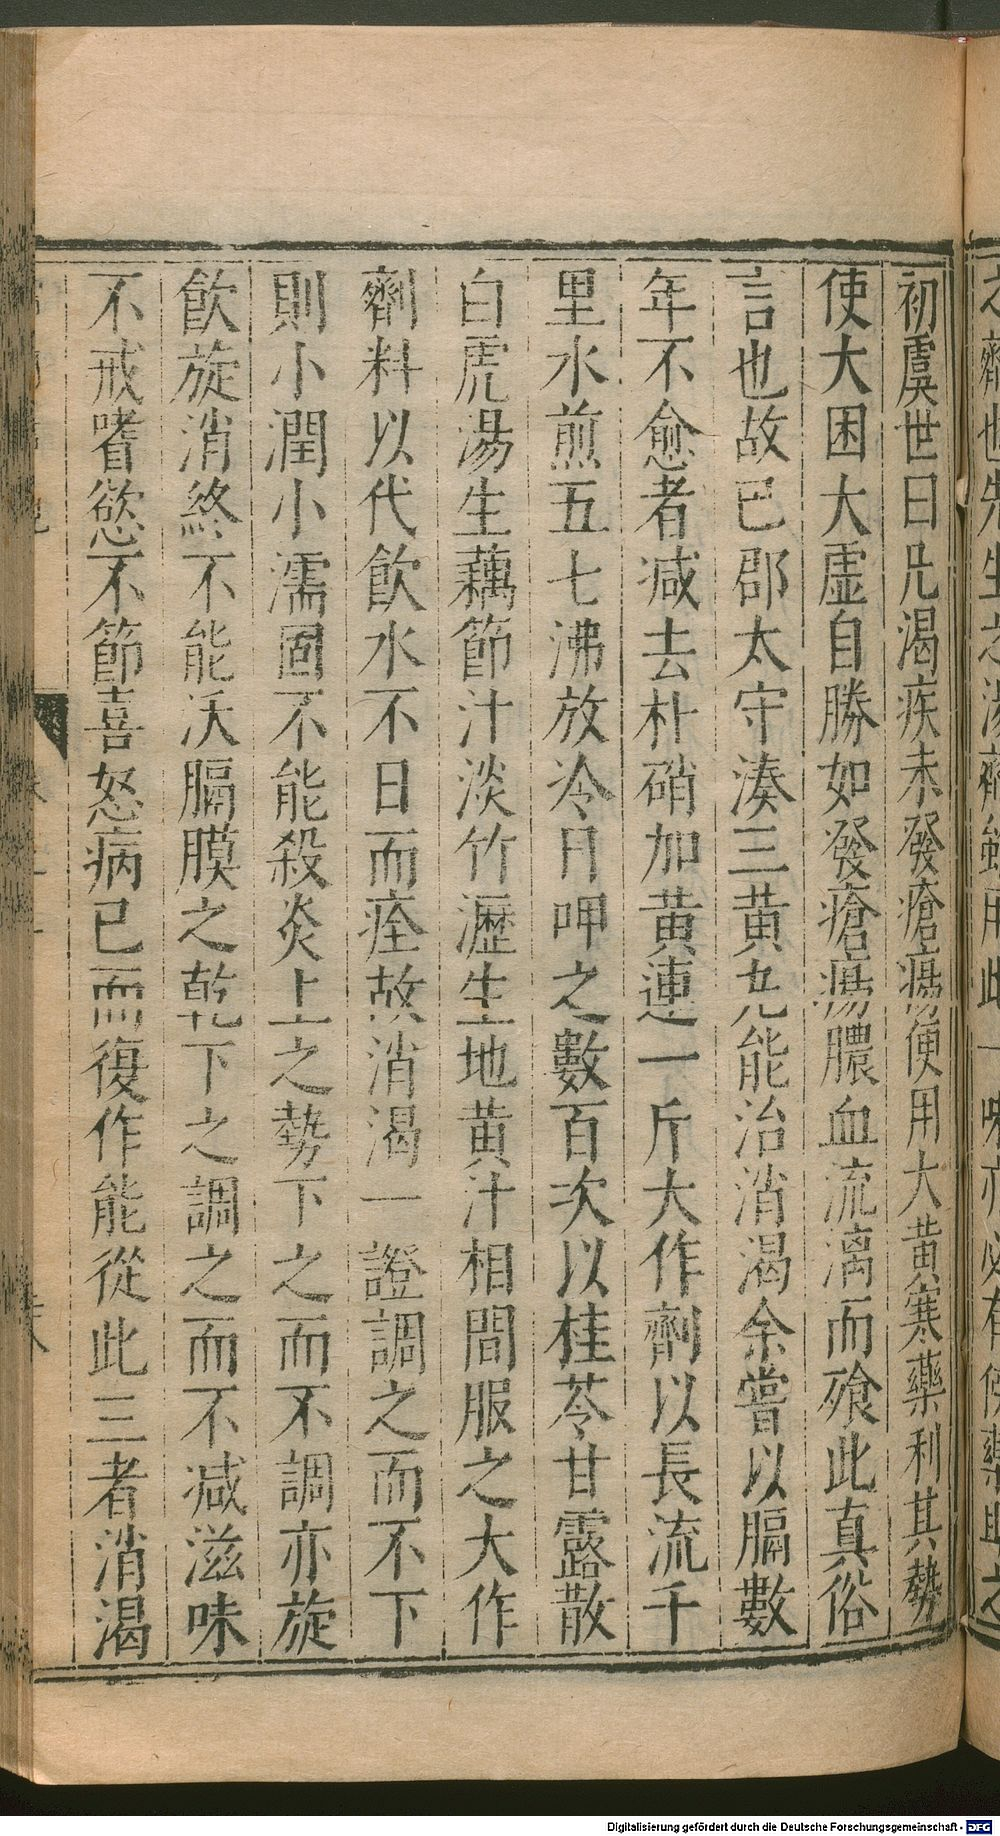 初虞世曰凡渴疾未發瘡瘍便用大黄寒藥利其勢
使大困大虛自勝如發瘡瘍膿血流漓而飱此真俗
言也故巴郡太守湊三黄丸能治消渴余嘗以膈數
年不愈者減去朴硝加黄連一斤大作劑以長流千
里水煎五七沸放冷日呷之數百次以桂苓甘露散
白虎湯生藕節汁淡竹瀝生地黄汁相間服之大作
劑料以代飲水不日而痊故消渴一證調之而不下
則小潤小濡固不能殺炎上之勢下之而不調亦旋
飲旋消終不能沃膈膜之乾下之調之而不減滋味
不戒嗜慾不節喜怒病已而復作能從此三者消渴
Digitalisierung gefördert durch die Deutsche Forschungsgemeinschaft - DFG